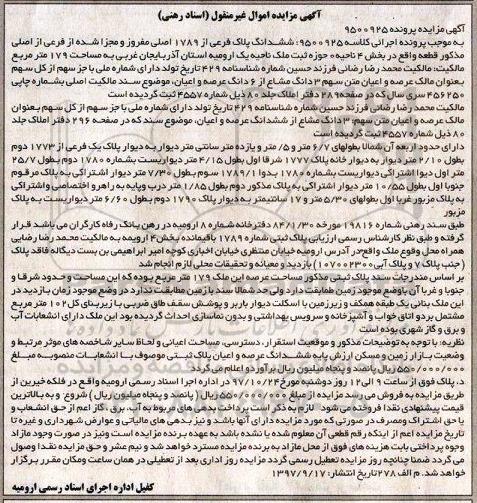 آگهی مزایده اموال غیرمنقول (اسناد رهنی)
آگهی مزایده پرونده ۹۵۰۰۹۲۵
به موجب پرونده اجرائی کلاسه ۹۵۰۰۹۲۵: ششدانگ پلاک فرعی از ۱۷۸۹ اصلی مفروز و مجزا شده از فرعی از اصلی
مذکور قطعه واقع در بخش ۴ ناحیه ۰ حوزه ثبت ملک ناحیه یک ارومیه استان آذربایجان غربی به مساحت ۱۷۹ متر مربع
مالکیت: مالکیت محمد رضا رضائی فرزند حسین شماره شناسنامه ۴۲۹ تاریخ تولد دارای شماره ملی با جز سهم از کل سهم
بعنوان مالک عرصه و اعیان متن سهم ۳ دانگ مشاع از ۶ دانگ عرصه و اعیان، موضوع سند مالکیت اصلی بشماره چاپی
۴۵۶۲۵۰ سری سال که در صفحه ۲۸۹ دفتر املاک جلد ۸۰ ذیل شماره ۴۵۵۷ ثبت گردیده است
مالکیت محمد رضا رضائی فرزند حسین شماره شناسنامه ۴۲۹ تاریخ تولد دارای شماره ملی با جز سهم از کل سهم بعنوان
مالک عرصه و اعیان متن سهم: ۳ دانگ مشاع از ششدانگ عرصه و اعیان، موضوع سند که در صفحه ۲۹۶ دفتر املاک جلد
۸۰ ذیل شماره ۴۵۵۷ ثبت گردیده است
دارای حدود اربعه آن شمالا بطولهای ۶/۷ متر و ۵ متر و یازده متر سانتی متر دیوار به دیوار پلاک یک فرعی از ۱۷۷۳ دوم
بطول ۲/۱۰ متر دیوار به دیوار خانه پلاک ۱۷۷۷ شرقا اول بطول ۴/۱۵ متر دیواریست بشماره ۱۷۸۰ دوم بطول ۲۵/۷
متر اول دیوا اشتراکی دیواریست بشماره ۱۷۸۰ بدوا ۱۷۸۹/۱ سوم بطول ۷/۳۰ متر دیوار اشتراکی به پلاک مرقوم
جنوبا اول بطول ۱۰/۵۵ متر دیوار اشتراکی به پلاک مذکور دوم بطول ۱/۸۵ متر درب و پایه به راهرو اختصاصی و اشتراکی
به پلاک مزبور غربا اول بطولهای ۵/۳۰ متر و ۱۷ سانتیمتر به دیوار پلاک ۱۷۹۰ دوم بطول ۶/۶۰ متر دیواریست به پلاک
مزبور
طبق سند رهنی شماره ۱۹۸۱۶ مورخه ۸۴/۱/۳۰ دفترخانه شماره ۸ ارومیه در رهن بانک رفاه کارگران می باشد قرار
گرفته و طبق نظر کارشناس رسمی ارزیابی پلاک ثبتی شماره ۱۷۸۹ باقیمانده بخش ۴ ارومیه به مالکیت محمد رضا رضایی
همراه محل وقوع ملک واقع در آدرس ارومیه خیابان منتظری خیابان اخباری کوچه امیر ابراهیمی بن بست دیگاله فاقد پلاک
( جنب پلاک ۷ و پلاک آبی ۱۰۷۰۰۰۲۳۰۰ ) بازدید و معیانه و تحقیقات محلی لازم انجام شد
بر اساس مندرجات سند پلاک ثبتی مذکور مساحت عرصه این ملک ۱۷۹ متر مربع بوده که این مساحت و حدود شرقا و
جنوبا و غربا آن باوضع موجود زمین طمابقت دارد ولی حد شمالا سند با زمین مطابقت ندارد در وضع موجود زمان بازدید در
این ملک بنائی یک طبقه همکف و زیرزمین با اسکلت دیوار باربر و پوشش سقف طاق ضربی با زیربنای کل ۱۰۲ متر مربع
مشتمل بر دو اتاق خواب و آشپزخانه و سرویس بهداشتی و بدون نماسازی احداث گردیده بود این ملک دارای انشعابات آب
و برق و گاز شهری بوده است
نظریه: با توجه به توضیحات مذکور و موقعیت استقرار، دسترسی، مساحت اعیانی و لحاظ سایر شاخصه های موثر مرتبط و
وضعیت بازار زمین و مسکن ارزش پایه ششدانگ عرصه و اعیان پلاک ثبتی موصوف با انشعابات منصوبه مبلغ
۵۵۰/۰۰۰/۰۰۰ ریال پانصد و پنجاه میلیون ریال برآورد و اعلام می گردد
د، پلاک فوق از ساعت ۹ الی ۱۲ روز دوشنبه مورخ ۹۷/۱۰/۲۴ در اداره اجرا اسناد رسمی ارومیه واقع در فلکه خیرین از
طریق مزایده به فروش می رسد مزایده از مبلغ ۵۵۰/۰۰۰/۰۰۰ ریال ( پانصد و پنجاه میلیون ریال ) شروع و به بالاترین
قیمت پیشنهادی نقدا فروخته می شود. لازم به ذکر است پرداخت بدهی های مربوط به آب، برق، گاز اعم از حق انشعاب و
یا حق اشتراک ومصرف در صورتی که مورد مزایده دارای آنها باشد و نیز بدهی های مالیاتی و عوارض شهرداری و غیره تا
تاریخ مزایده اعم از اینکه رقم قطعی آن معلوم شده یا نشده باشد به عهده برنده مزایده است ونیز در صورت وجود مازاد
وجوه پرداختی بابت هزینه های فوق از محل مازاد به برنده مزایده مسترد خواهد شد و نیم عشر و حق مزایده نقدا وصول
می گردد ضمنا چنانچه روز مزایده تعطیل رسمی گردد مزایده روز اداری بعد از تعطیلی در همان ساعت ومکان مقرر برگزار
خواهد شد. م الف ۲۷۸ تاریخ انتشار: ۱۳۹۷/۹/۱۷
کفیل اداره اجرای اسناد رسمی ارومیه